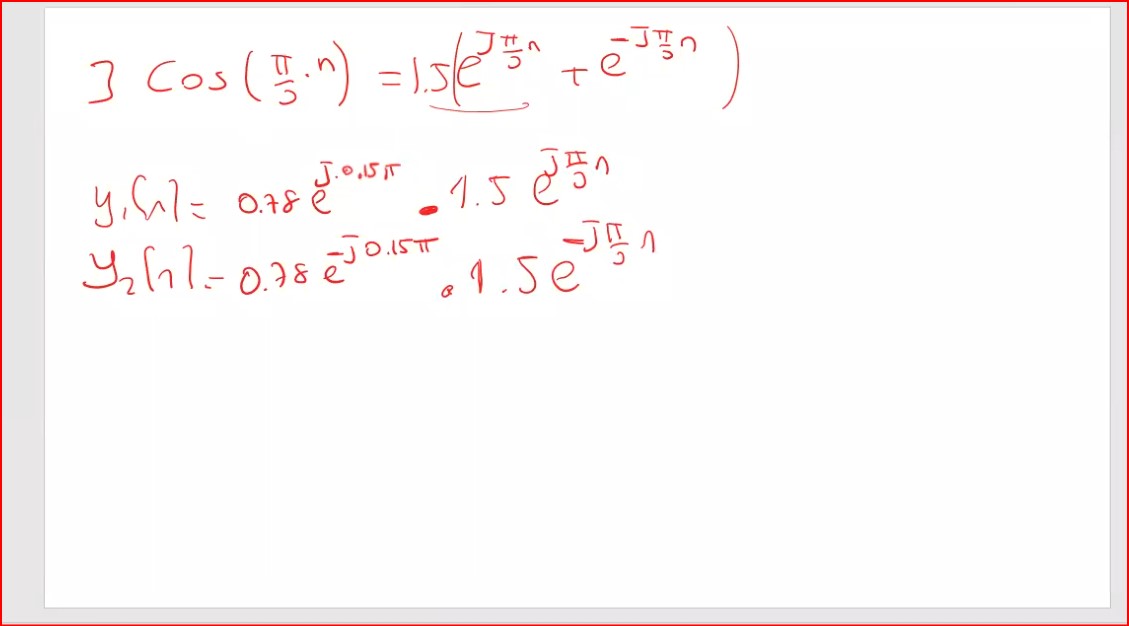 3 Cos(π/5 · n) = 1.5(e^{Jπ/5 n} + e^{-Jπ/5 n})
y₁[n] = 0.78 e^{J·0.15π} · 1.5 e^{Jπ/5 n}
y₂[n] = 0.78 e^{-J0.15π} · 1.5 e^{-Jπ/5 n}